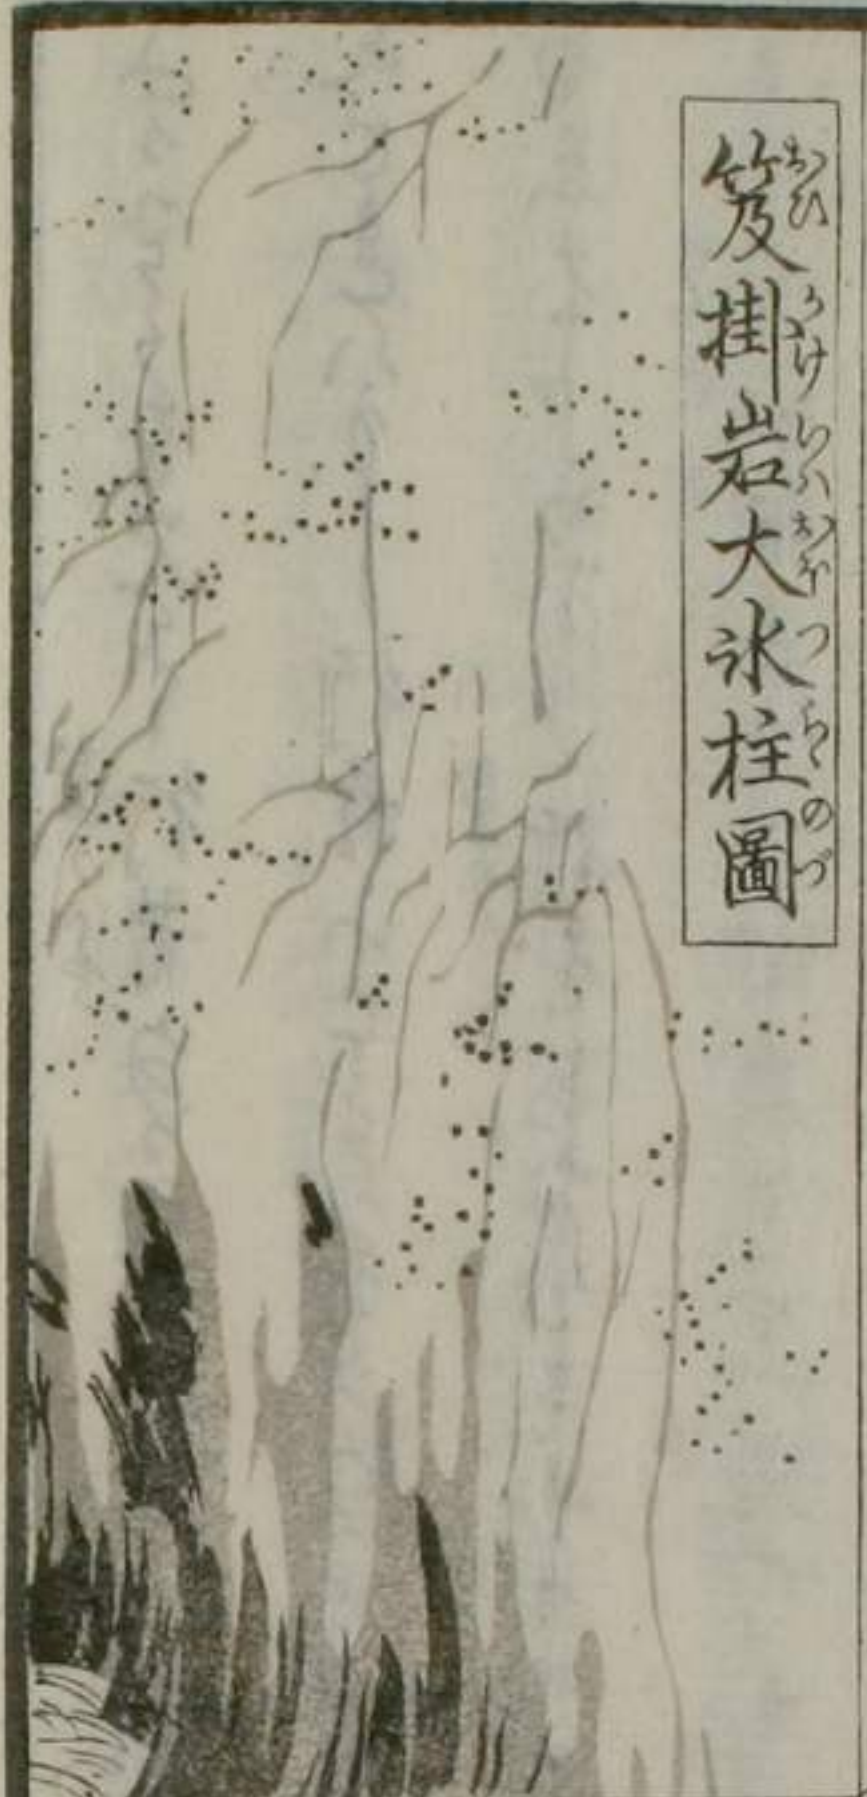 笈掛岩大氷柱圖
おひかけいハおほつらゝのづ